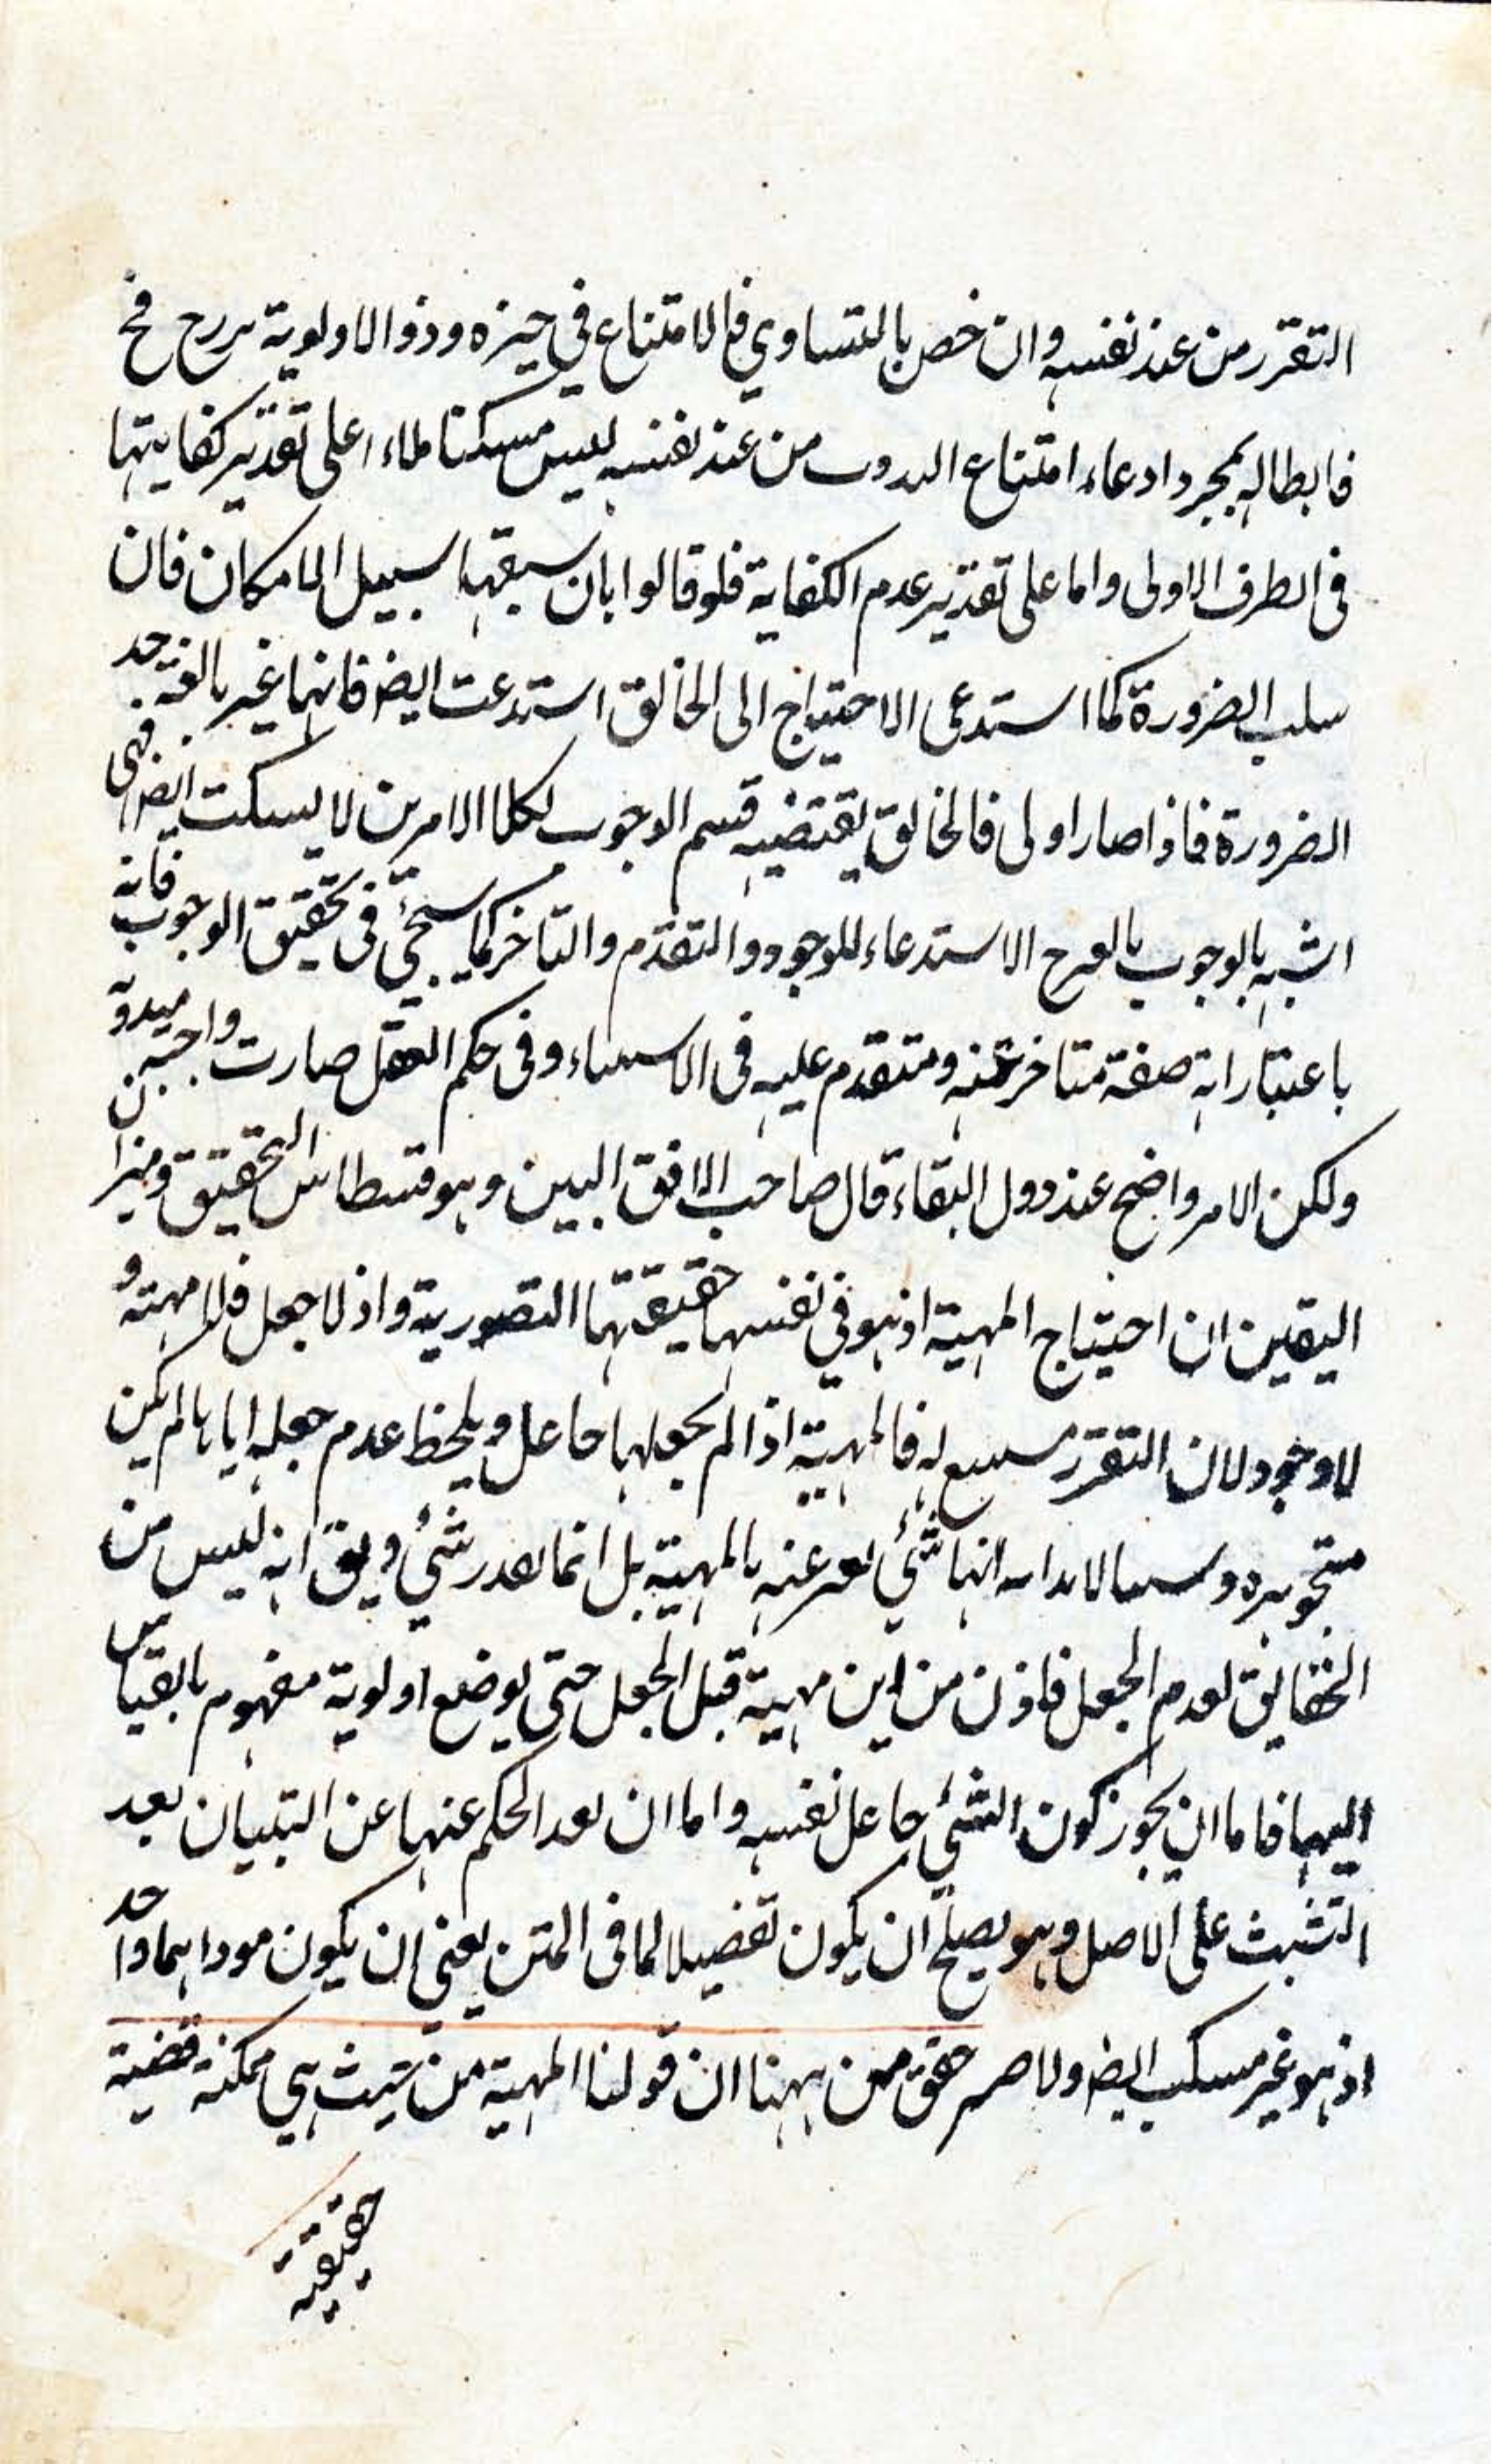 التقرر من عند نفسه وان خص بالمتساوي فالامتناع في حيزه وذو الاولوية فح
فابطاله بمجرد ادعاء امتناع من عند نفسه ليس مسكتا على تقدير كفايتها
في الطرف الاولى واما على تقدير عدم الكفاية فلو قالوا بان سبقها سبيل الامكان فان
سلب الضرورة كما استدعى الاحتياج الى الخالق استدعت ايضا فانهما غير بالغة حد
الضرورة فاذا صار اولى فالخالق يقتضيه قسم الوجوب لكلا الامرين لا يسكت ايضا فهي
اشبه بالوجوب الاستدعاء للوجود والتقدم والتاخر كما سيجيء في تحقيق الوجوب فانه
باعتبار انه صفة متاخر عنه ومتقدم عليه في الاسماء وفي حكم العقل صارت واجبة
ولكن الامر واضح عند دول البقاء قال صاحب الافق المبين وهو قسطاس التحقيق وميزان
اليقين ان احتياج المهية اذ هو في نفسها حقيقتها التصورية واذ لا جعل فلا مهية و
لا وجود لان التقرر له فالمهية اذا لم يجعلها جاعل ويلحظ عدم جعله اياها لم يكن
متجوهره انها شيء يعبر عنه بالمهية بل انما يقدر شيء ويق انه ليس من
الحقايق لعدم الجعل فاذن من اين مهية قبل الجعل حتى يوضع اولوية مفهوم بالقياس
اليها فاما ان يجوز كون الشيء جاعل نفسه واما ان بعد الحكم عنها عن التبيان بعد
التشبث على الاصل وهو يصلح ان يكون تفصيلا لما في المتن يعني ان يكون موداهما واحد
اذ هو غير مسكت ايضا ولا حقق من ههنا ان قولنا المهية من حيث هي ممكنة قضية
حقيقية